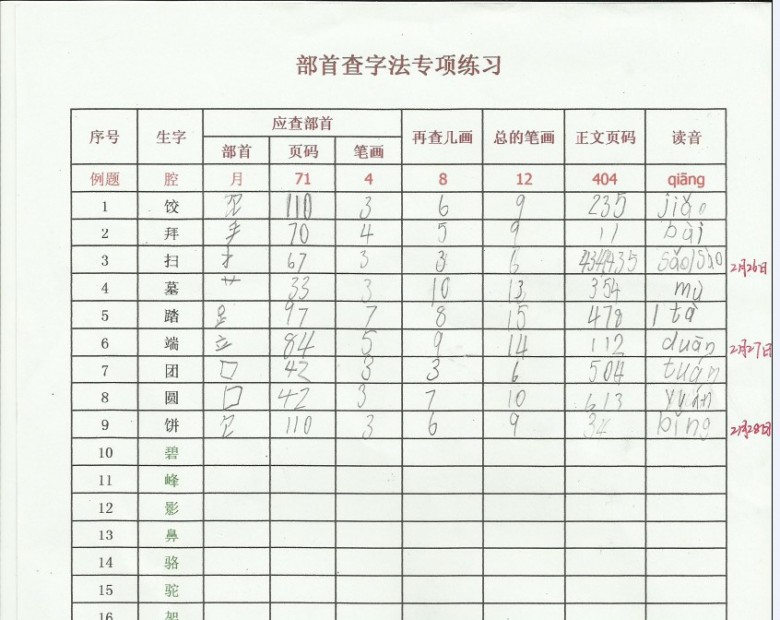 部首查字法专项练习
序号 生字 应查部首 再查几画 总的笔画 正文页码 读音
部首 页码 笔画
例题 腔 月 71 4 8 12 404 qiāng
1 饺 饣 110 3 6 9 235 jiǎo
2 拜 手 70 4 5 9 11 bài
3 扫 扌 67 3 3 6 434435 sǎo/sào 2月26日
4 墓 艹 33 3 10 13 354 mù
5 踏 97 7 8 15 478 tà
6 端 立 84 5 9 14 112 duān 2月27日
7 团 囗 42 3 3 6 504 tuán
8 圆 囗 42 3 7 10 613 yyuán
9 饼 饣 110 3 6 9 34 bǐng 2月28日
10 碧
11 峰
12 影
13 鼻
14 骆
15 驼
16 架